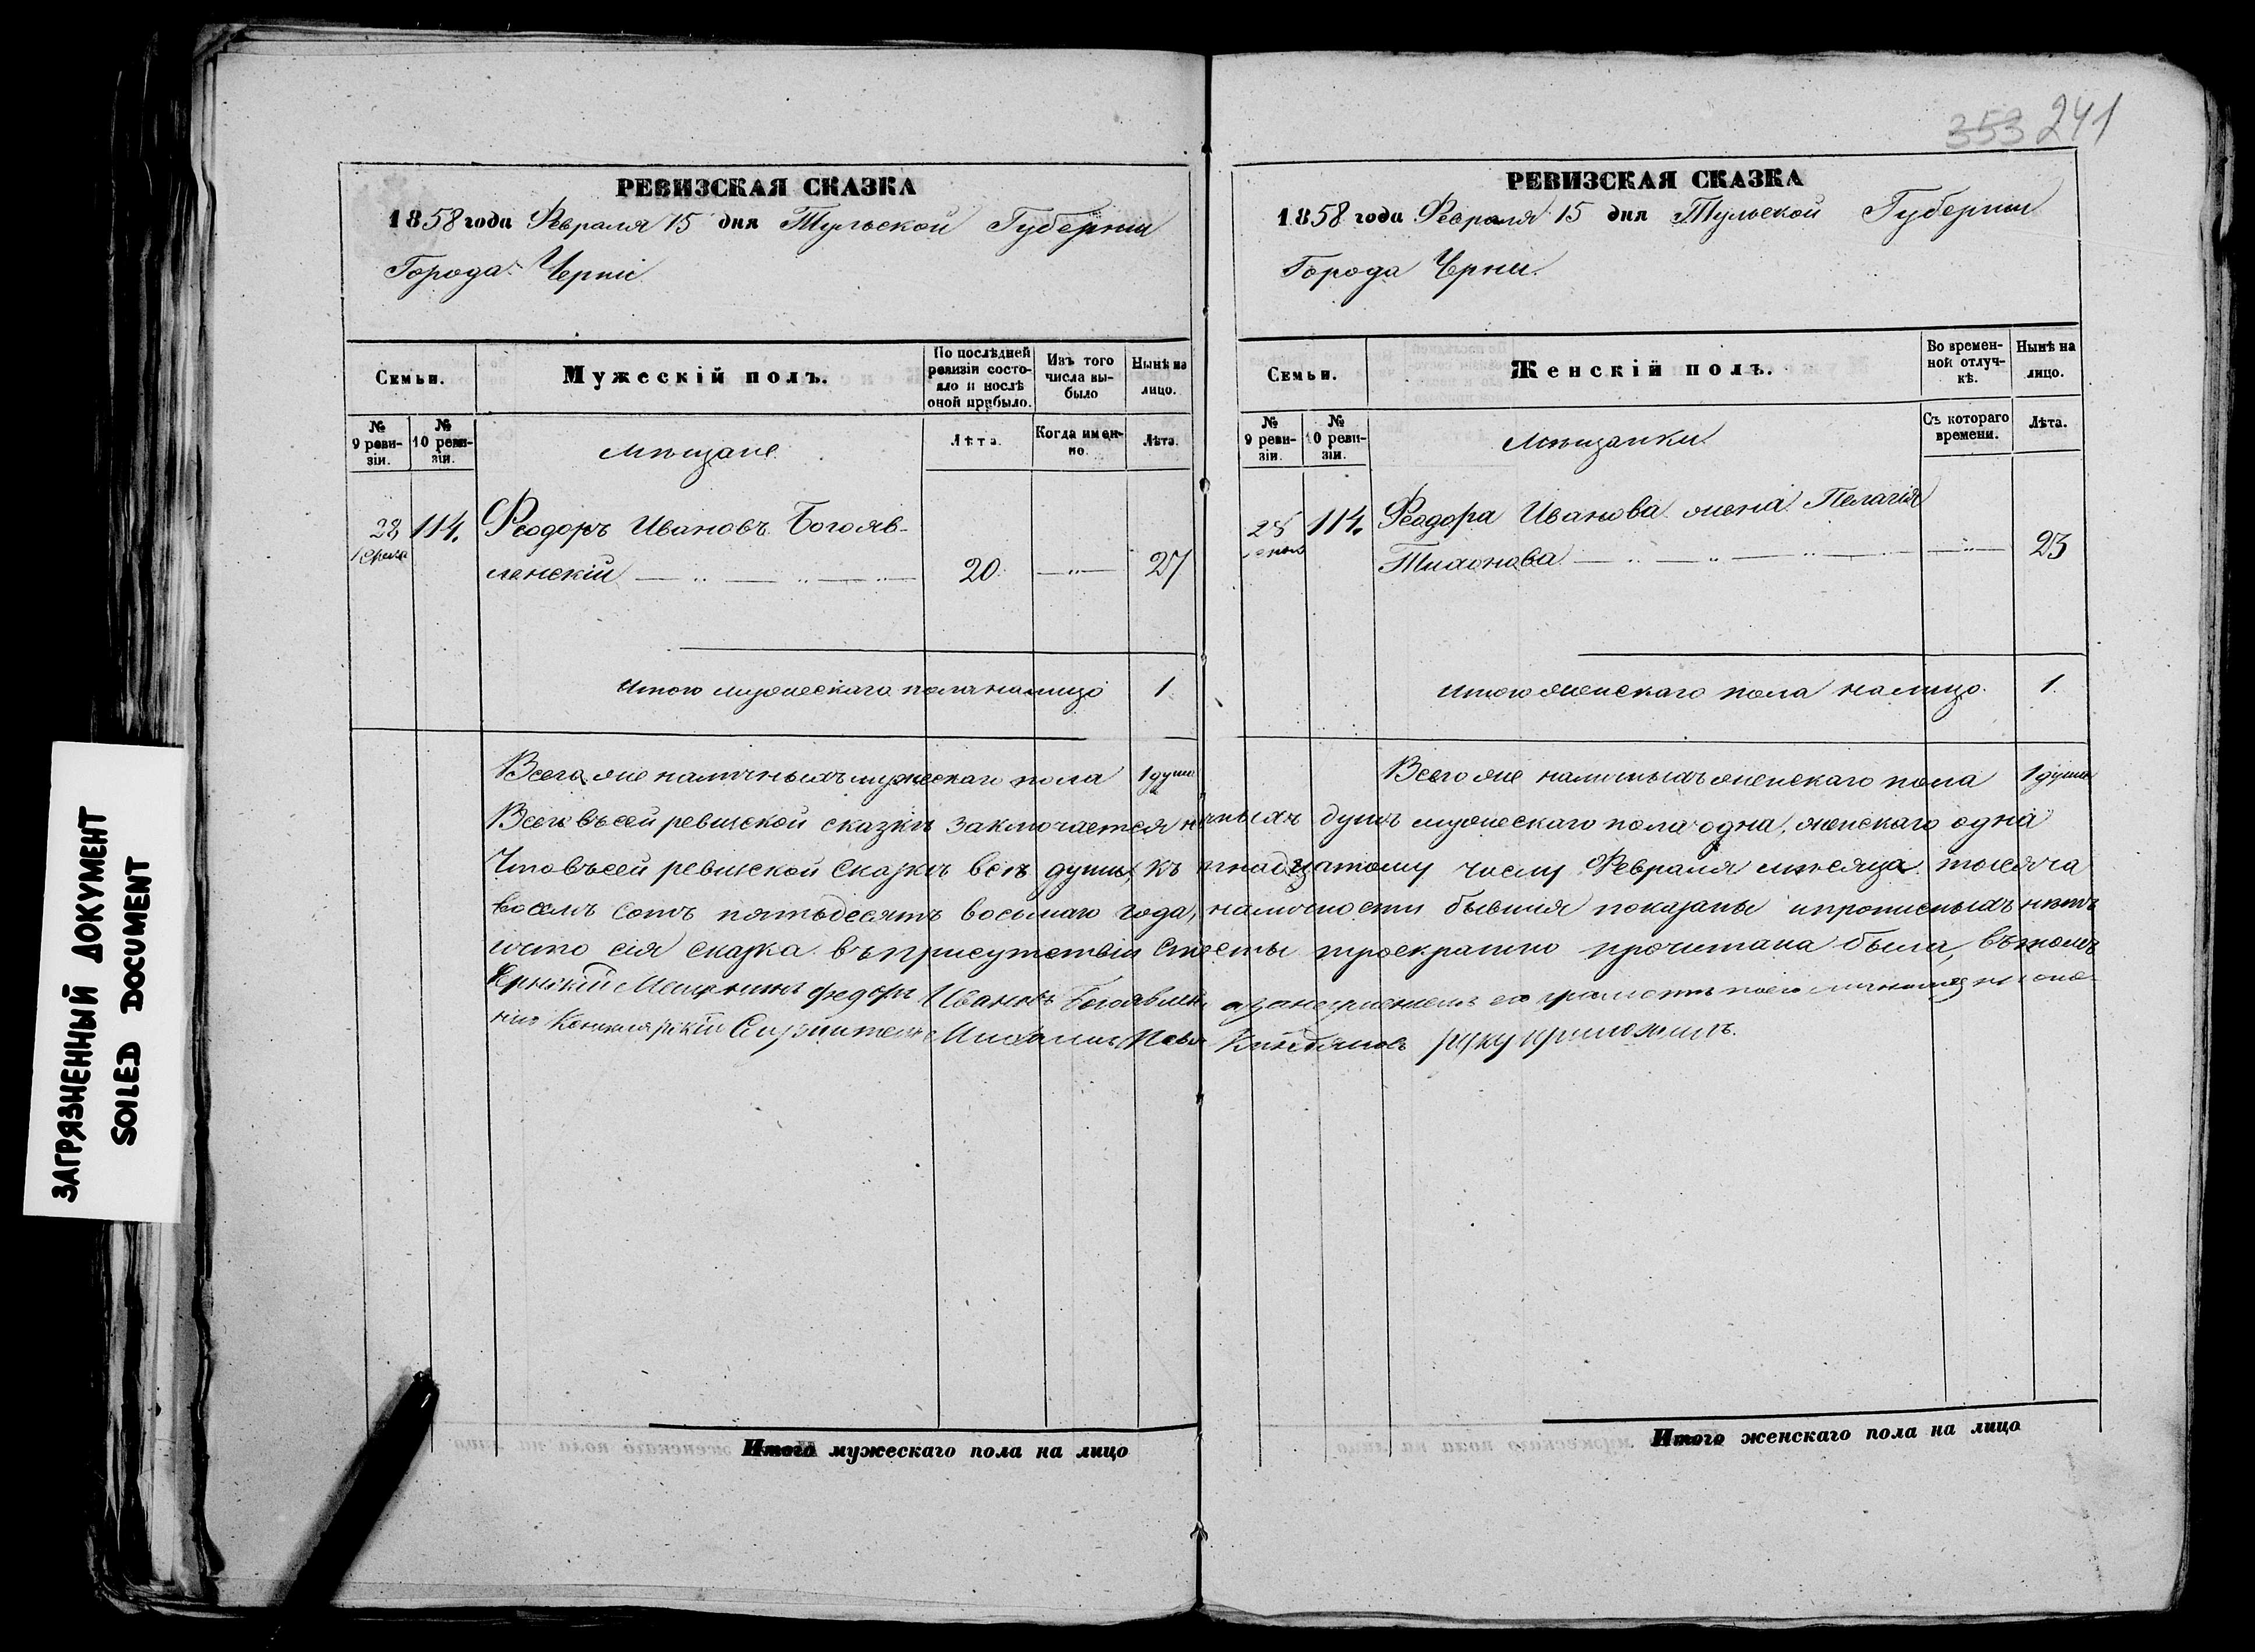 353 241
РЕВИЗСКАЯ СКАЗКА
1858 года Февраля 15 дня Тульской Губерніи
Города Черни
Семьи.
Мужескій полъ.
По послѣдней ревизіи состояло и послѣ оной прибыло.
Изъ того числа выбыло
Нынѣ на лицо.
№ 9 ревизіи.
№ 10 ревизіи.
Мѣщане
Лѣта.
Когда именно.
Лѣта.
28 114. Ѳеодоръ Ивановъ Богояв-
ленскій 20. 27
Итого мужескаго пола налицо 1
Всего же наличныхъ мужескаго пола 1 душа
РЕВИЗСКАЯ СКАЗКА
1858 года Февраля 15 дня Тульской Губерніи
Города Черни.
Семьи.
Женскій полъ.
Во временной отлучкѣ.
Нынѣ на лицо.
№ 9 ревизіи.
№ 10 ревизіи.
Мѣщанки
Съ котораго времени.
Лѣта.
114. Ѳеодора Иванова жена Пелагія
Тихонова 23
Итого женскаго пола налицо. 1.
Всего же наличныхъ женскаго пола 1 душа
Всего въ сей ревизской сказкѣ заключается душъ мужескаго пола одна, женскаго одна
Что въ сей ревизской сказкѣ всѣ души, къ числу Февраля мѣсяца тысяча
восемь сотъ пятьдесятъ восьмаго года, наличности бывшія показаны и прописныхъ нѣтъ
и что сія сказка въ присутствіи троекратно прочитана была, въ томъ
Мещянинъ Федоръ Ивановъ
руку приложилъ.
Итого мужескаго пола на лицо
Итого женскаго пола на лицо
ЗАГРЯЗНЕННЫЙ ДОКУМЕНТ
SOILED DOCUMENT